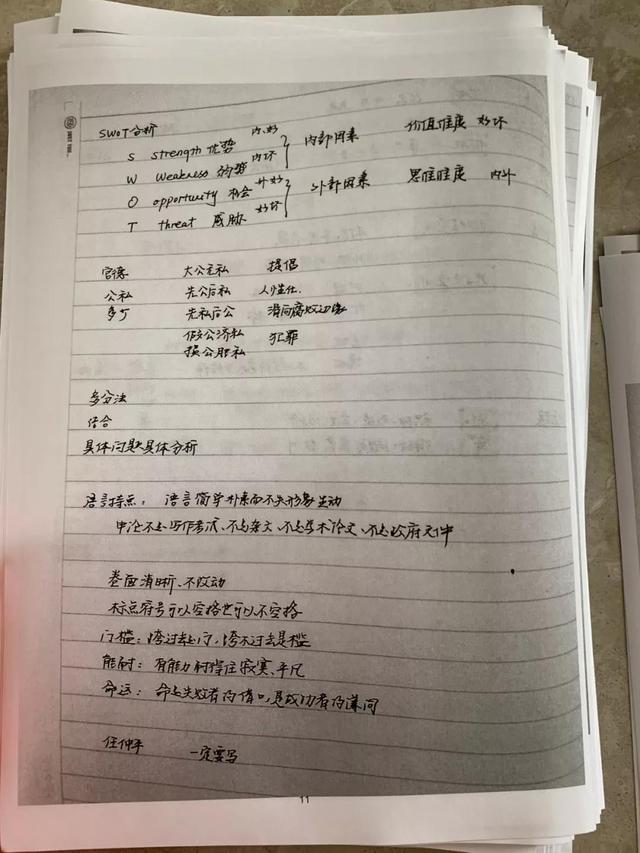 SWOT分析
S strength 优势 内.好 内部因素 价值维度 好坏
W weakness 弱势 内坏
O opportunity 机会 外好 外部因素 思维维度 内外
T threat 威胁 好坏
官德 大公无私 提倡
公私 先公后私 人性化.
多少 先私后公 滑向腐败边缘
假公济私 犯罪
损公肥私
多分法
结合
具体问题具体分析
语言特点: 语言简单朴素而不失形象生动
申论不是写作考试、不是杂文、不是学术论文、不是政府文件
卷面清晰、不改动
标点符号可以空格也可以不空格
门槛: 跨过去是门, 跨不过去是槛
能耐: 有能力耐得住寂寞、平凡
命运: 命是失败者的借口, 是成功者的谦词
任仲平 一定要写
11